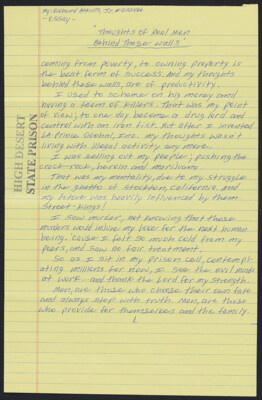 By: Richard
-Essay-
"Thoughts of Real Men
Behind These Walls"
coming from poverty, to owning property is
the best form of success. And my thoughts
behind these walls, are of productivity.
I used to scheme on big money and
having a team of killers. That was my point
of view, to one day become a drug lord and
control with an iron fist. But after I invented
LA-Prince Global, Inc. my thoughts wasn't
living with illegal activity any more.
I was selling out my people; pushing the
crack-rock, heroin and marijuana.
That was my mentality, due to my struggle
in the ghetto of Stockton, California. And
my future was heavily influenced by them
Street-Kings!
I saw murder, not knowing that those
murders would imbue my love for the next human
being. Cause I felt so much cold from my
peers, and saw no fair treatment.
So as I sit in my prison cell, contemplat-
ing millions for now, I see the evil mode
at work - and thank the Lord for my strength.
Men, are those who choose their own fate
and always step with truth. Men, are those
who provide for themselves and the family.
1
HIGH DESERT
STATE PRISON